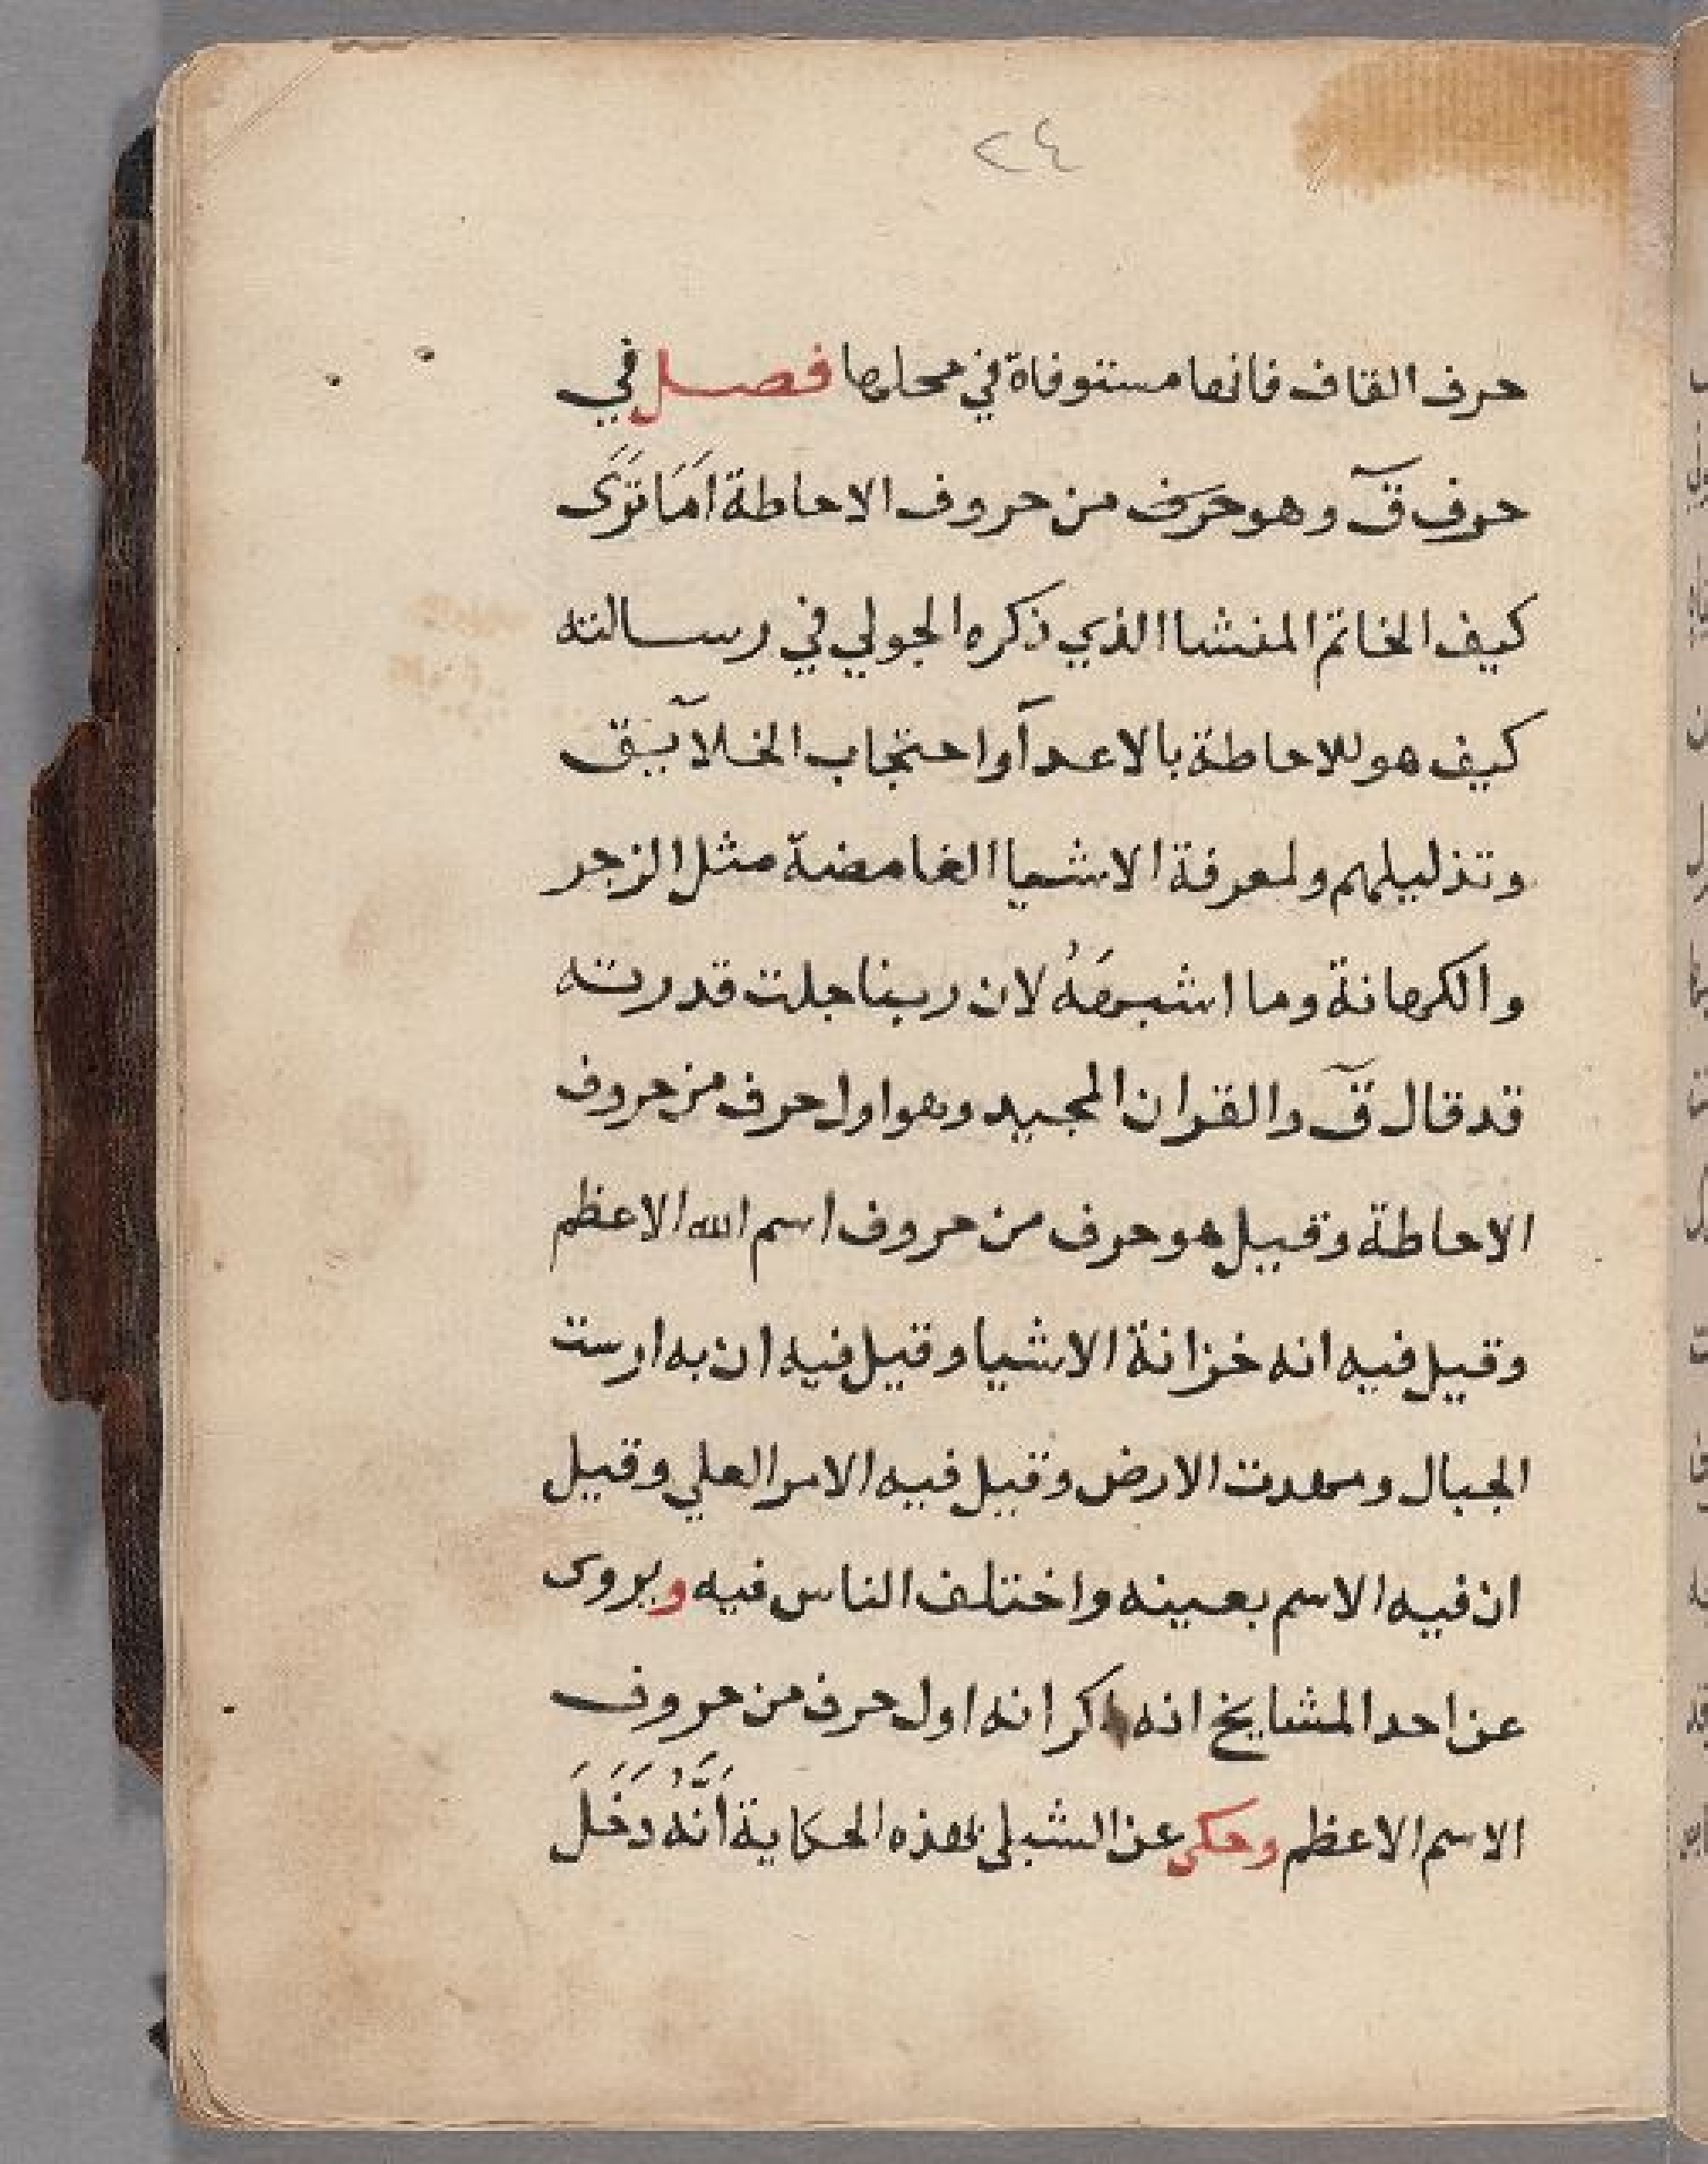 ٢٤
حرف القاف فانها مستوفاة في محلها فصل في
حرف قٓ وهو حرف من حروف الاحاطة اَمَا تَرَى
كيف الخاتم المنشا الذي ذكره الجولي في رسالته
كيف هو للاحاطة بالاعدآ واحتجاب الخلآيق
وتذليلهم ولمعرفة الاشيا الغامضة مثل الزجر
والكهانة وما اشبهَهُ لان ربنا جلت قدرته
قد قال قٓ والقران المجيد وهو اول حرف من حروف
الاحاطة وقيل هو حرف من حروف اسم الله الاعظم
وقيل فيه انه خزانة الاشيا وقيل فيه ان به ارست
الجبال ومهدت الارض وقيل فيه الامر العلي وقيل
ان فيه الاسم بعينه واختلف الناس فيه ويروى
عن احد المشايخ انه انه اول حرف من حروف
الاسم الاعظم وحكى عن الشبلى بهذه الحكاية اَنَّهُ دَخَلَ